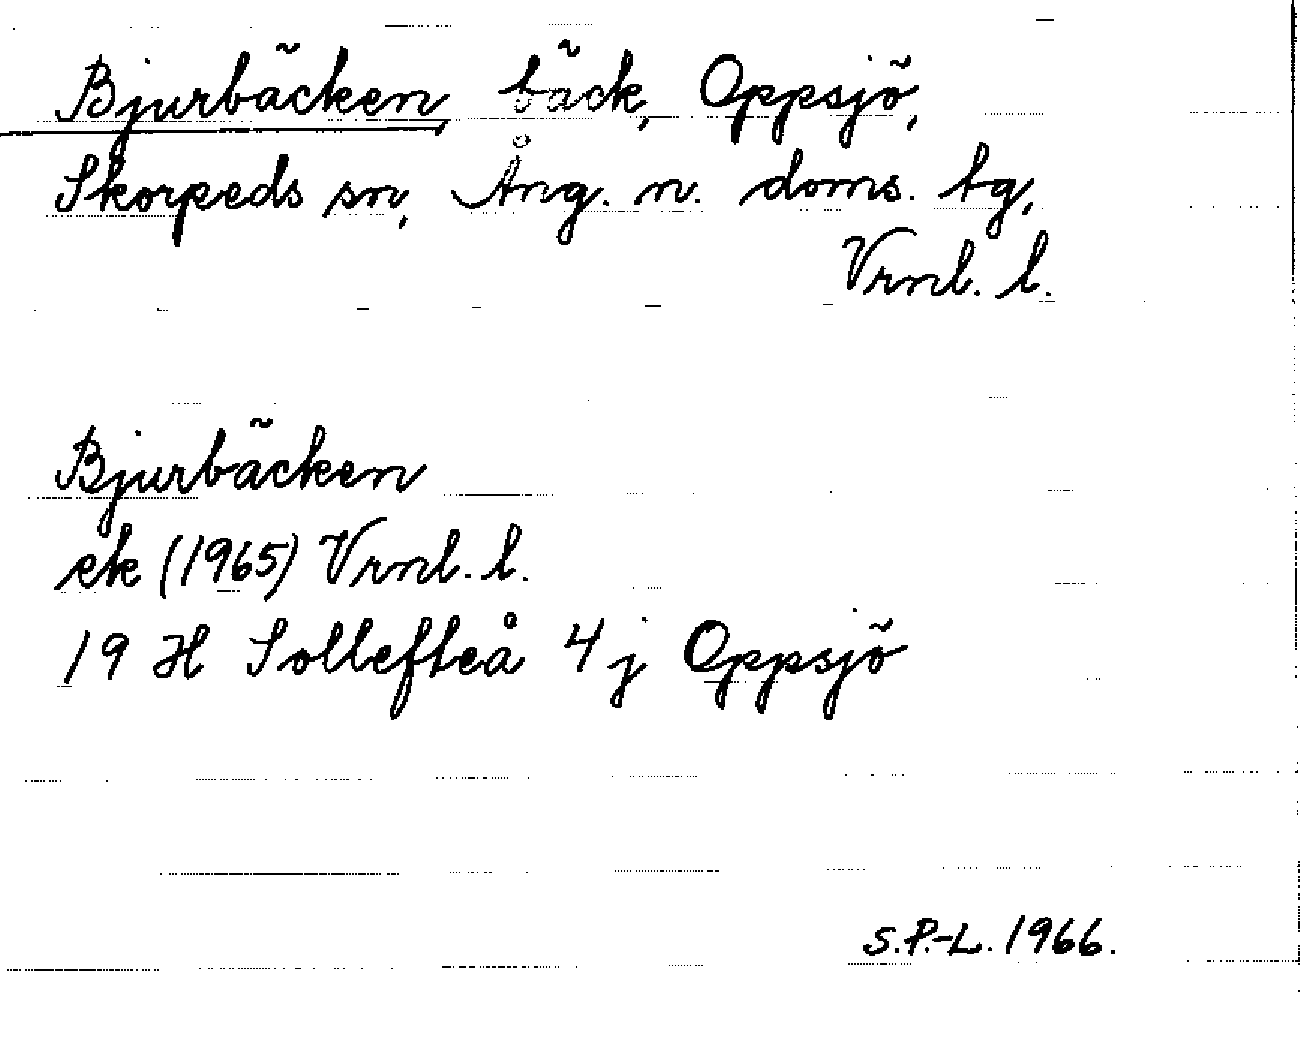 Bjurbäcken, bäck, Oppsjö,
Skorpeds sn, Ång. n. doms. tg,
Vrnl. l.
Bjurbäcken
ek (1965) Vrnl. l.
19 H Sollefteå 4 j Oppsjö
S.P.-L. 1966.